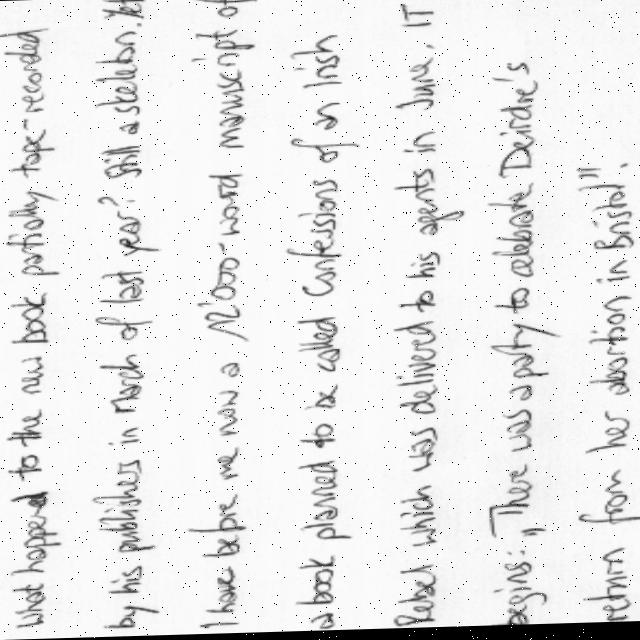 What happened to the new book partially tape-recorded
by his publishers in March of last year? Still a skeleton. Yet
I have before me now a 12'000-word manuscript of
a book planned to be called Confessions of an Irish
Rebel which was delivered to his agents in June. IT
begins: "There was a party to celebrate Deirdre's
return from her abortion in Bristol".